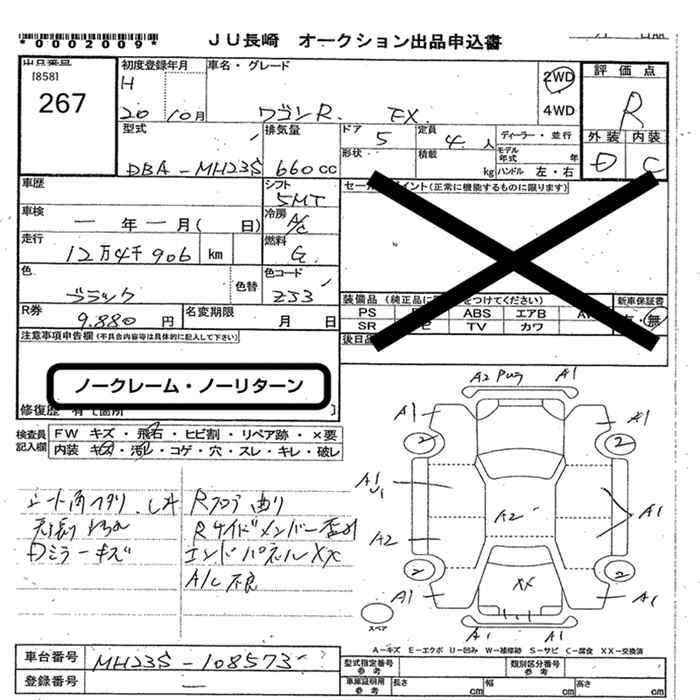 *0002009*
JU長崎 オークション出品申込書
出品番号
[858]
267
初度登録年月
H
20 10月
車名・グレード
ワゴンR. FX
2WD
4WD
評価点
R
外装 内装
D C
型式
DBA-MH23S
排気量
660cc
ドア 5
形状
定員 4 人
積載 kg
ディーラー・並行
モデル年式 年
ハンドル 左・右
車歴
シフト
5MT
セー
イント(正常に機能するものに限ります)
車検
一 年 一 月( 日)
冷房
A/C
走行
12万4千906 km
燃料
G
色
ブラック
色替
色コード
ZJ3
装備品(純正品に
をつけてください)
新車保証書
PS ABS エアB
・無
SR TV カワ
R券
9.880 円
名変期限
月 日
後日品
注意事項申告欄(不具合内容等は具体的に記入して下さい)
ノークレーム・ノーリターン
修復歴 有[箇所 ]
検査員記入欄
FW キズ・飛石・ヒビ割・リペア跡・×要
内装 キズ・汚レ・コゲ・穴・スレ・キレ・破レ
Rフロアあり
Dミラーキズ
Rサイドメンバー
エンドパネルXX
A/C不良
A2 A1
A1 A1
2 2
A1
U1
A2
A2
A1
2 2
XX
A1 A1
A1 A1
スペア
A-キズ E-エクボ U-凹み W-補修跡 S-サビ C-腐食 XX-交換済
車台番号
MH23S-108573
登録番号
一
型式指定番号
参考
類別区分番号
参考
車庫証明用
参考
長さ cm
幅 cm
高さ cm